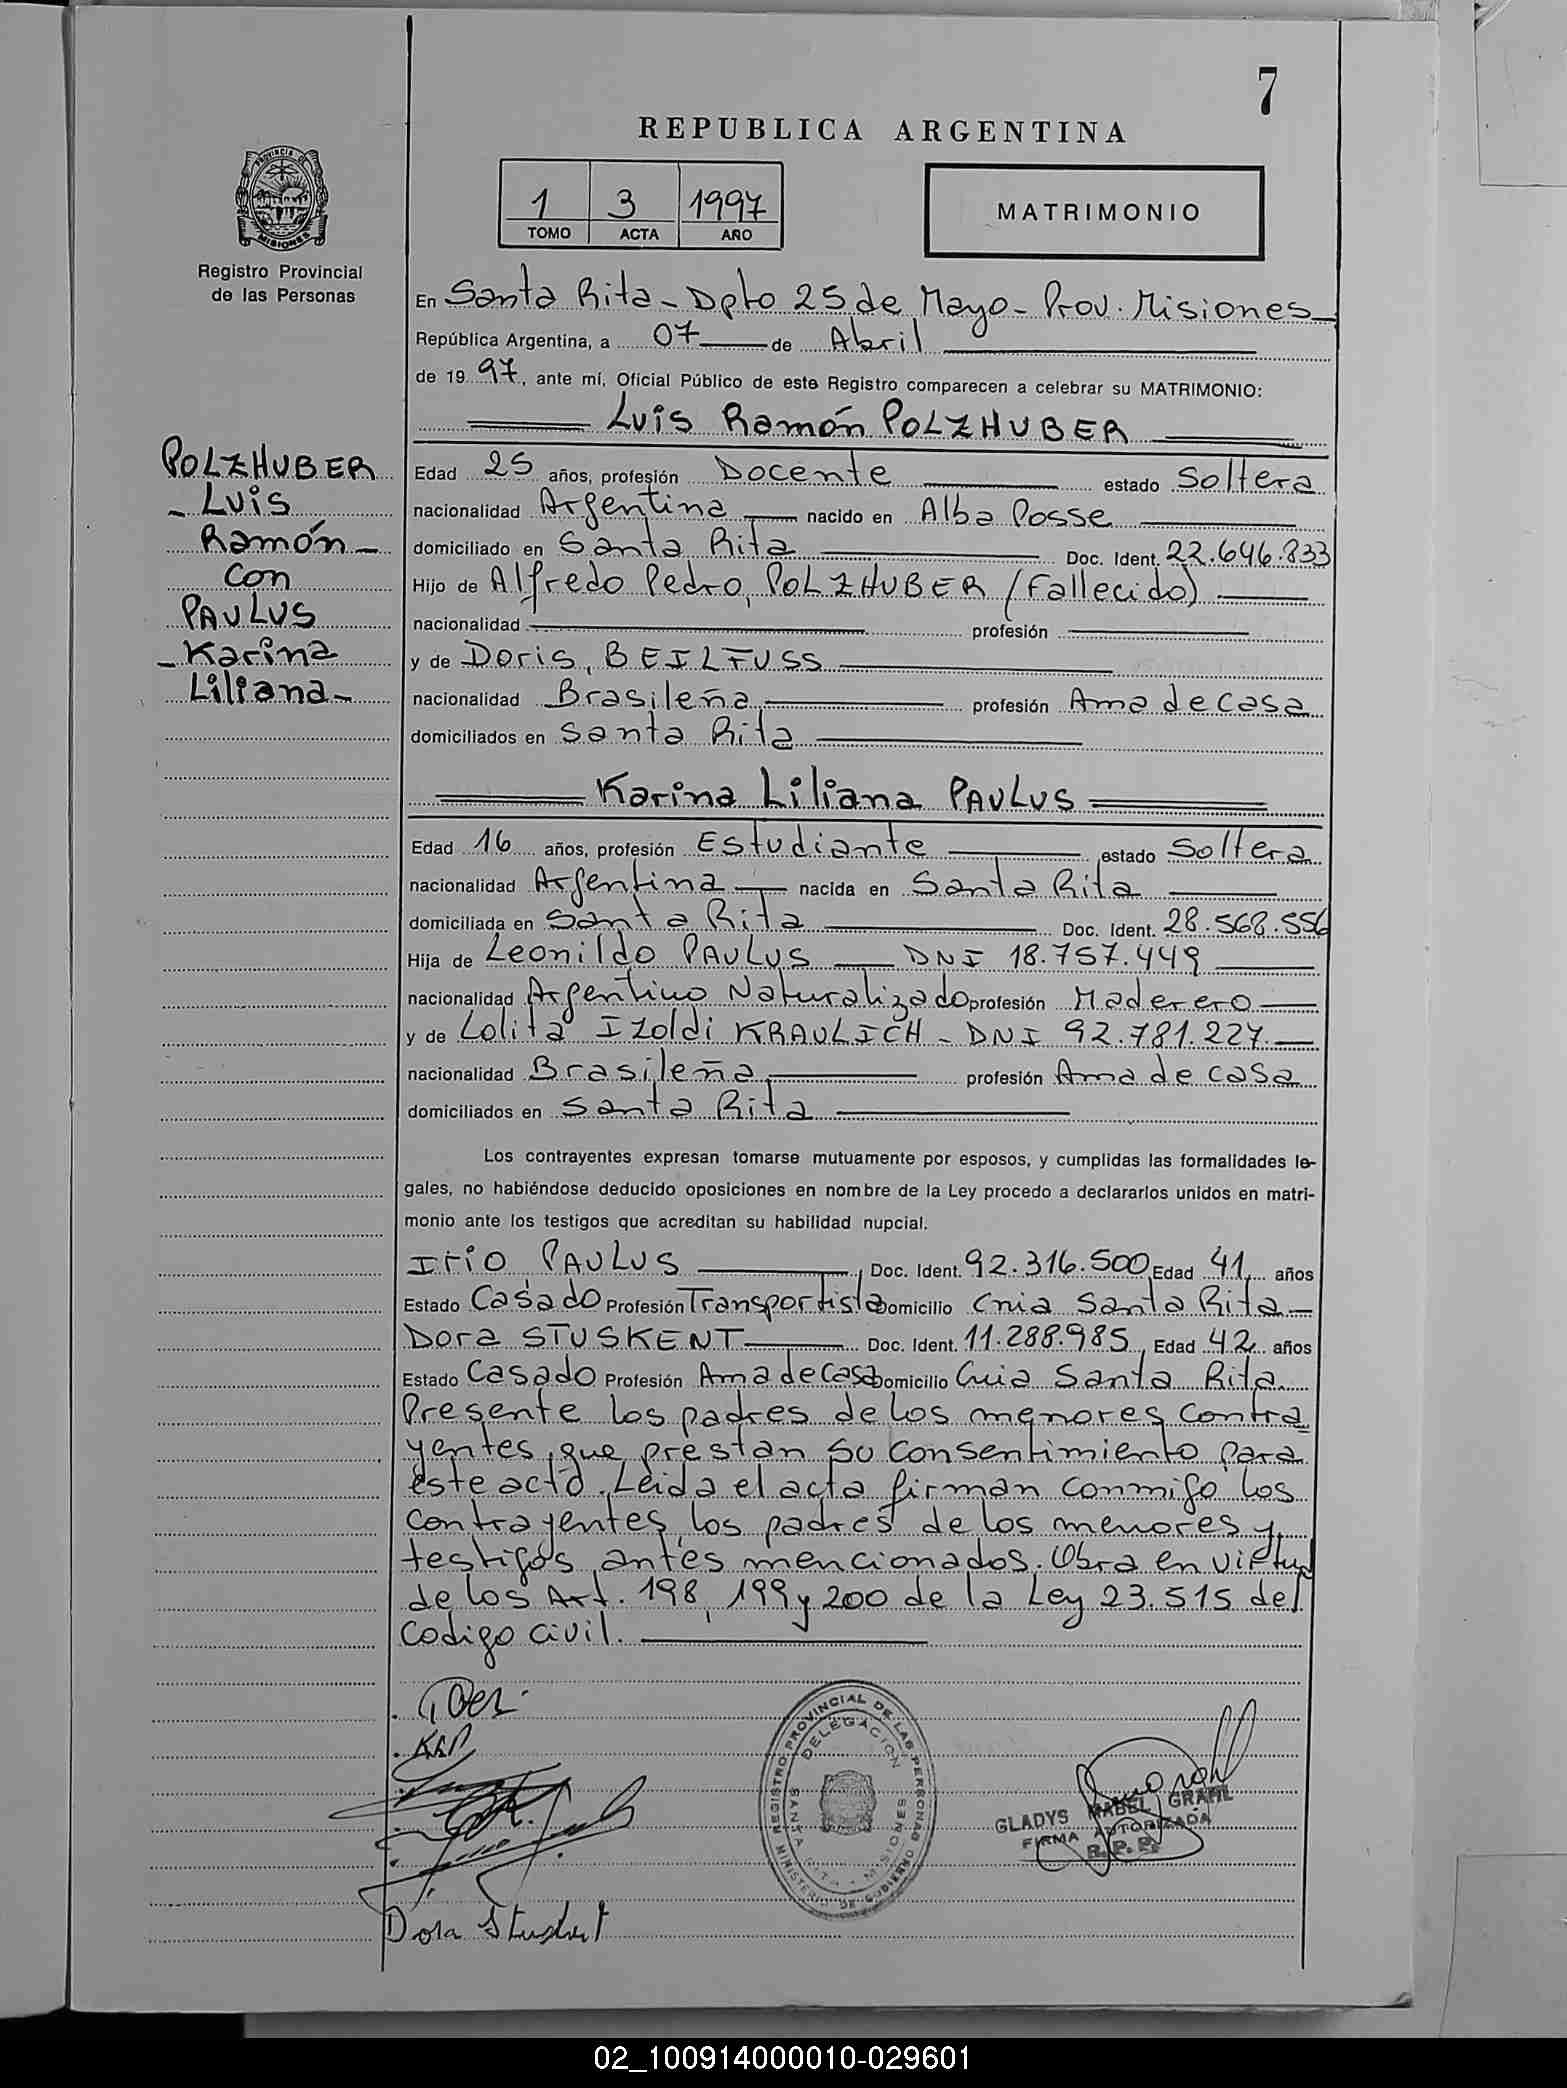 7
REPUBLICA ARGENTINA
1 3 1997
TOMO ACTA AÑO
MATRIMONIO
PROVINCIA DE
MISIONES
Registro Provincial
de las Personas
En Santa Rita - Dpto 25 de Mayo - Prov. Misiones
República Argentina, a 07 de Abril
de 19 97, ante mí, Oficial Público de este Registro comparecen a celebrar su MATRIMONIO:
Luis Ramón POLZHUBER
POLZHUBER
- Luis
Ramón -
con
PAULUS
- Karina
Liliana -
Edad 25 años, profesión Docente estado Soltera
nacionalidad Argentina nacido en Alba Posse
domiciliado en Santa Rita Doc. Ident. 22.646.833
Hijo de Alfredo Pedro, POLZHUBER (Fallecido)
nacionalidad profesión
y de Doris, BEILFUSS
nacionalidad Brasileña profesión Ama de casa
domiciliados en Santa Rita
Karina Liliana PAULUS
Edad 16 años, profesión Estudiante estado Soltera
nacionalidad Argentina nacida en Santa Rita
domiciliada en Santa Rita Doc. Ident. 28.568.556
Hija de Leonildo PAULUS DNI 18.757.449
nacionalidad Argentino Naturalizado profesión Maderero
y de Lolita Izoldi KRAULICH - DNI 92.781.227.
nacionalidad Brasileña profesión Ama de casa
domiciliados en Santa Rita
Los contrayentes expresan tomarse mutuamente por esposos, y cumplidas las formalidades le-
gales, no habiéndose deducido oposiciones en nombre de la Ley procedo a declararlos unidos en matri-
monio ante los testigos que acreditan su habilidad nupcial.
Irio PAULUS Doc. Ident. 92.316.500 Edad 41 años
Estado Casado Profesión Transportista Domicilio Cnia Santa Rita -
Dora STUSKENT Doc. Ident. 11.288.985, Edad 42 años
Estado Casado Profesión Ama de Casa Domicilio Cnia Santa Rita
Presente los padres de los menores contra
yentes, que prestan su consentimiento para
este acto. Leida el acta firman conmigo los
contrayentes, los padres de los menores y
testigos antes mencionados. Obra en virtud
de los Art. 198, 199 y 200 de la Ley 23.515 del
Codigo civil.
MINISTERIO DE GOBIERNO
REGISTRO PROVINCIAL DE LAS PERSONAS
DELEGACION
SANTA RITA - MISIONES
GLADYS MABEL GRAHL
FIRMA AUTORIZADA
R. P. P.
Dora
02_100914000010-029601